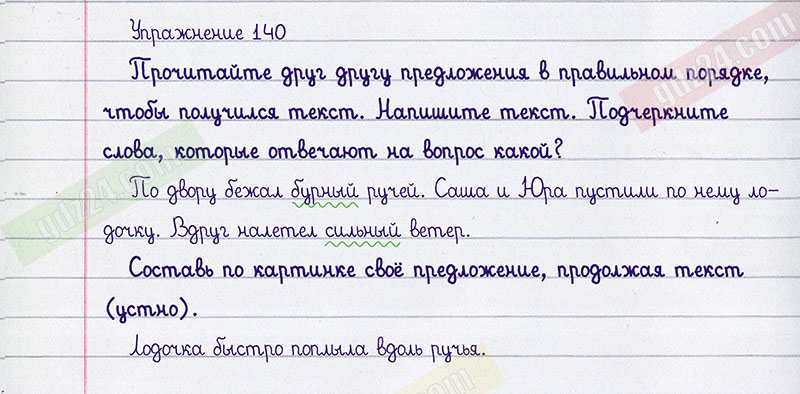 Упражнение 140
Прочитайте друг другу предложения в правильном порядке,
чтобы получился текст. Напишите текст. Подчеркните
слова, которые отвечают на вопрос какой?
По двору бежал бурный ручей. Саша и Юра пустили по нему ло-
дочку. Вдруг налетел сильный ветер.
Составь по картинке своё предложение, продолжая текст
(устно).
Лодочка быстро поплыла вдоль ручья.
gdz24.com
gdz24.com